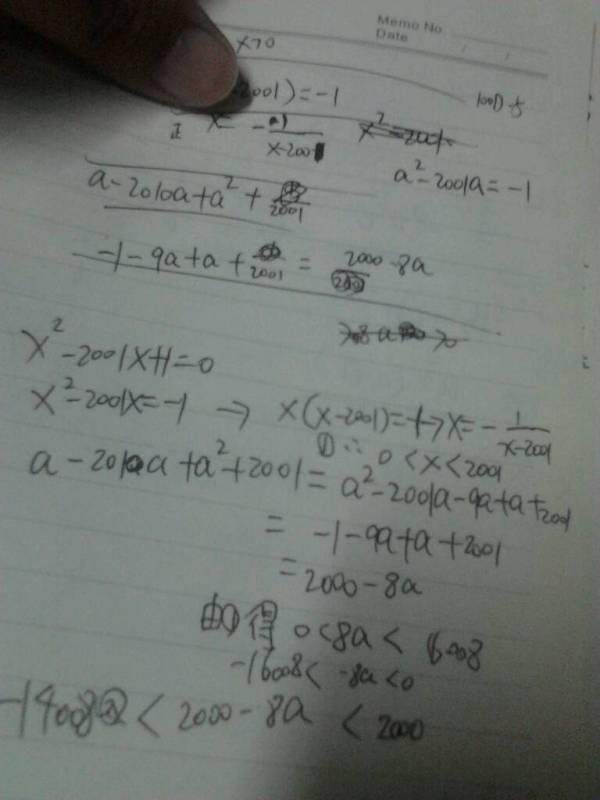 Memo No.
Date / /
x>0
2001)=-1
x²-2001x
a²-2001a=-1
a-2010a+a²+ 2001
-1-9a+a+ 2001 = 2000-8a
x²-2001x+1=0
x²-2001x=-1 → x(x-2001)=-1→x=-1/(x-2001)
①∴ 0<x<2001
a-2010a+a²+2001=a²-2001a-9a+a+2001
=-1-9a+a+2001
=2000-8a
由①得 0<8a<16008
-16008<-8a<0
-14008<2000-8a<2000